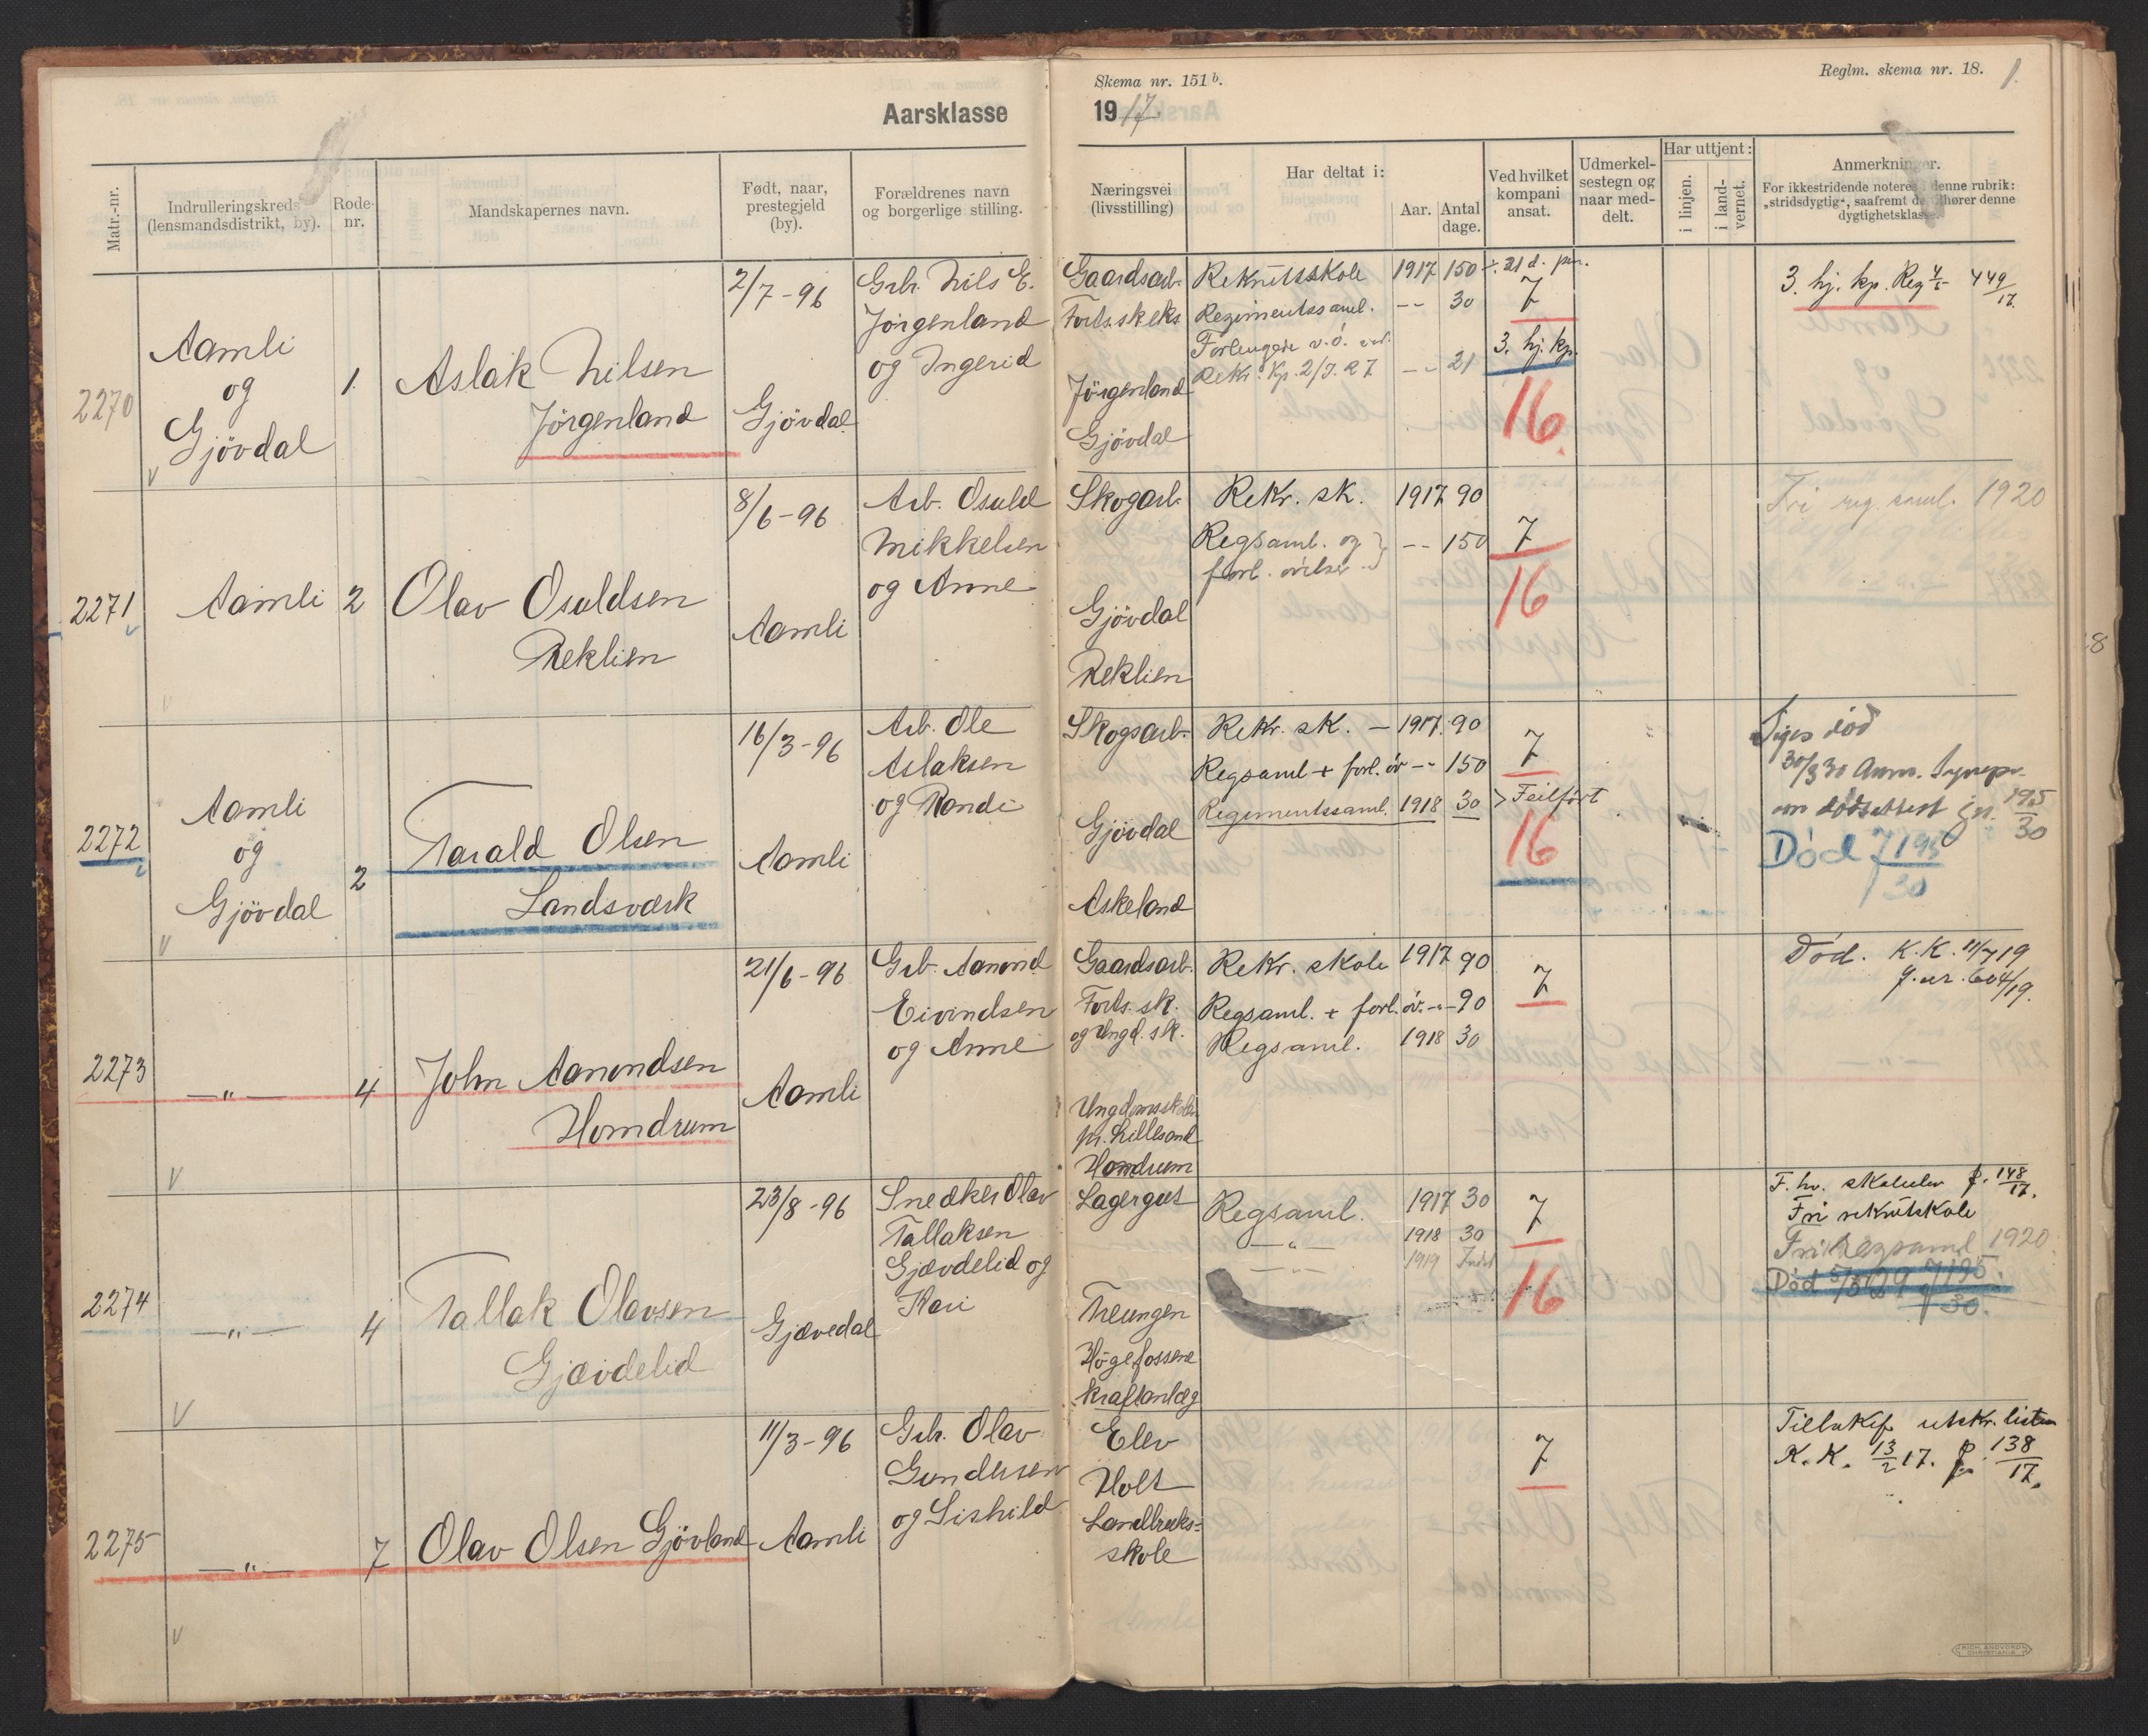 Skema nr. 151 b.
Reglm. skema nr. 18. 1.
Aarsklasse 1917
Matr.-nr.
Indrulleringskreds
(lensmandsdistrikt, by).
Rode-
nr.
Mandskapernes navn.
Født, naar,
prestegjeld
(by).
Forældrenes navn
og borgerlige stilling.
Næringsvei
(livsstilling)
Har deltat i:
Aar.
Antal
dage.
Ved hvilket
kompani
ansat.
Udmerkel-
sestegn og
naar med-
delt.
Har uttjent:
i linjen.
i land-
vernet.
Anmerkninger.
For ikkestridende noteres i denne rubrik:
„stridsdygtig“, saafremt de tilhører denne
dygtighetsklasse.
2270
Aamli
og
Gjövdal
1.
Aslak Nilsen
Jörgenland
2/7-96
Gjövdal
Grb. Nils E.
Jörgenland
og Ingerid
Gaardsarb.
Forts.skeks
Jörgenland
Gjövdal
Rekrutskole 1917 150
Regimentssaml. -- 30
Forlengede v. ö. ved
Rekr. Kp. 2/I.R7 -- 21
÷ 21 d. per.
7
3. hj. kp.
16
3. hj. kp. Reg 4/5 449/17.
2271
Aamli
2
Olav Osuldsen
Reklien
8/6-96
Aamli
Arb. Osuld
Mikkelsen
og Anne
Skogarb.
Gjövdal
Reklien
Rekr. sk. 1917 90
Regsaml. og
forl. övelser. -- 150
7
16
Fri reg. saml. 1920
2272
Aamli
og
Gjövdal
2
Tarald Olsen
Landsværk
16/3-96
Aamli
Arb. Ole
Aslaksen
og Randi
Skogsarb.
Gjövdal
Askeland
Rekr. sk. - 1917 90
Regsaml + forl. öv -- 150
Regimentssaml. 1918 30
7
> Feilfört
16
Siges död
30/3 30 Anm.
om dödsattest jn. 195/30
Död J 195/30
2273
-"-
4
John Aamondsen
Homdrum
21/6-96
Aamli
Grb. Aamond
Eivindsen
og Anne
Gaardsarb.
Forts. sk.
og Ungd. sk.
Ungdomsskolen
pr. Lillesand
Homdrum
Rekr. skole 1917 90
Regsaml. + forl. öv. -- 90
Regsaml. 1918 30
7
Död. K.K. 11/7 19
J. nr. 604/19.
2274
-"-
4
Tallak Olavsen
Gjævdelid
23/8-96
Gjævedal
Snedker Olav
Tallaksen
Gjævdelid og
Kari
Lagergut
Treungen
Högefossene
kraftanlæg
Regsaml. 1917 30
-"- 1918 30
-"- 1919
7
16
F. hv. skoleelev J. 148/17.
Fri rekrutskole
Fri Regsaml 1920
Död 5/5 29 J 195/30.
2275
-"-
7
Olav Olsen Gjövland
11/3-96
Aamli
Grb. Olav
Gundersen
og Sishild
Elev
Holt
Landbruks-
skole
7
Tilbakef. utskr. listen
K.K. 13/2 17. J. 138/17.
RICH. ANDVORD
CHRISTIANIA